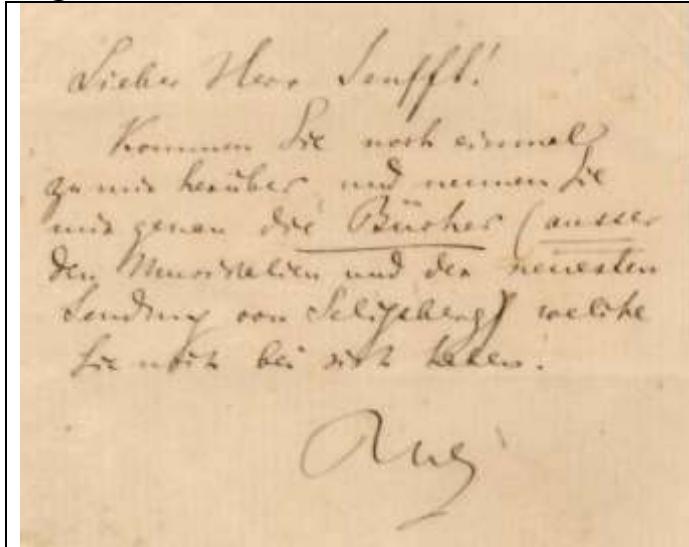 Lieber Herr Senfft!
Kommen Sie noch einmal
zu mir herüber und nennen Sie
mir genau die Bücher (ausser
den Musikalien und der neuesten
Sendung von Seligsberg) welche
Sie noch bei sich haben.